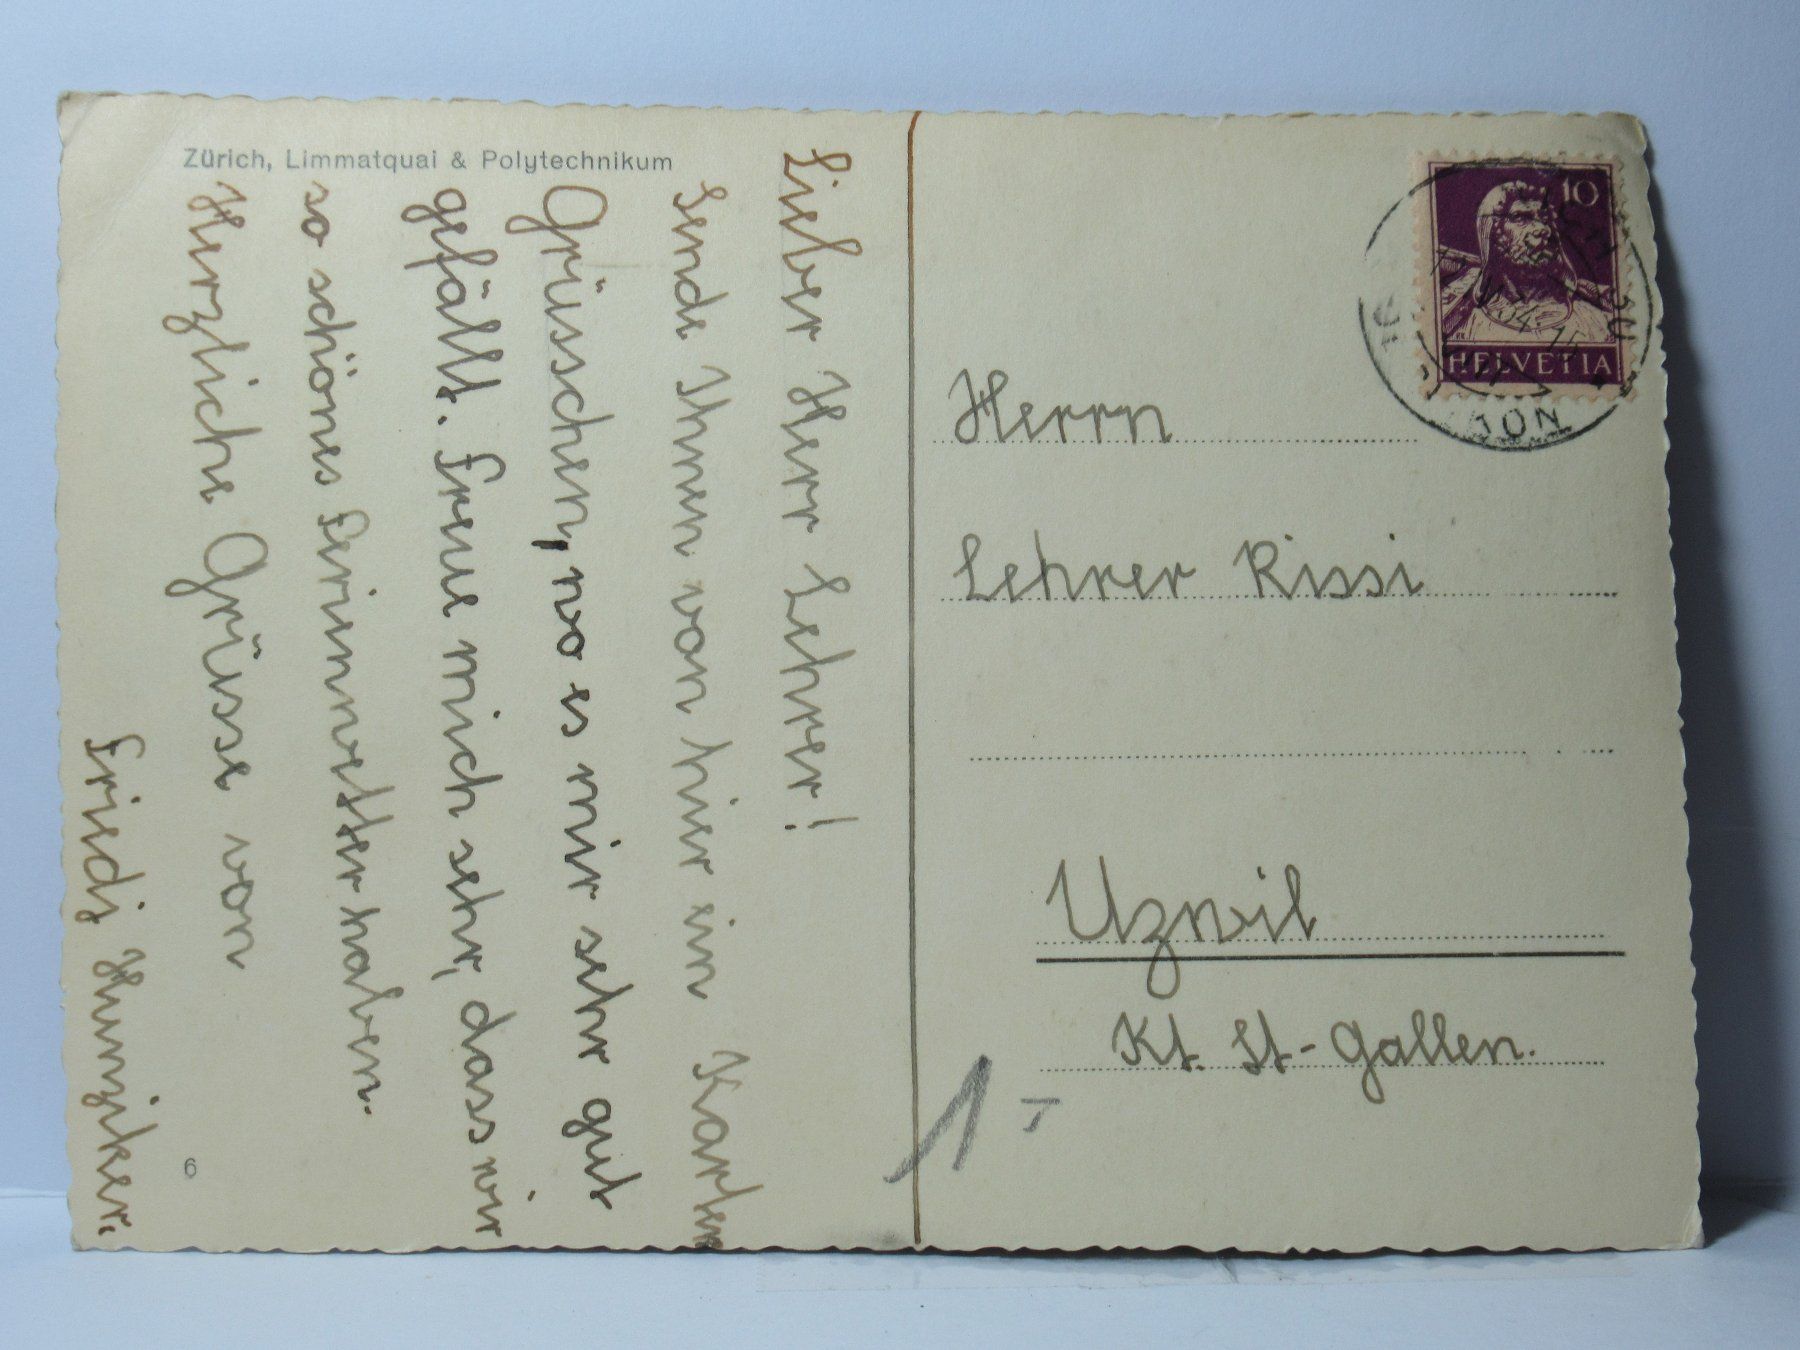 Zürich, Limmatquai & Polytechnikum
Lieber Herr Lehrer!
Sende Ihnen von hier ein Karten
Grüsschen, wo es mir sehr gut
gefällt. Freue mich sehr, dass wir
so schönes Ferienwetter haben.
Herzliche Grüsse von
Friedj Hunziker.
6
10
HELVETIA
Herrn
Lehrer Rissi
Uzwil
Kt. St-Gallen.
1